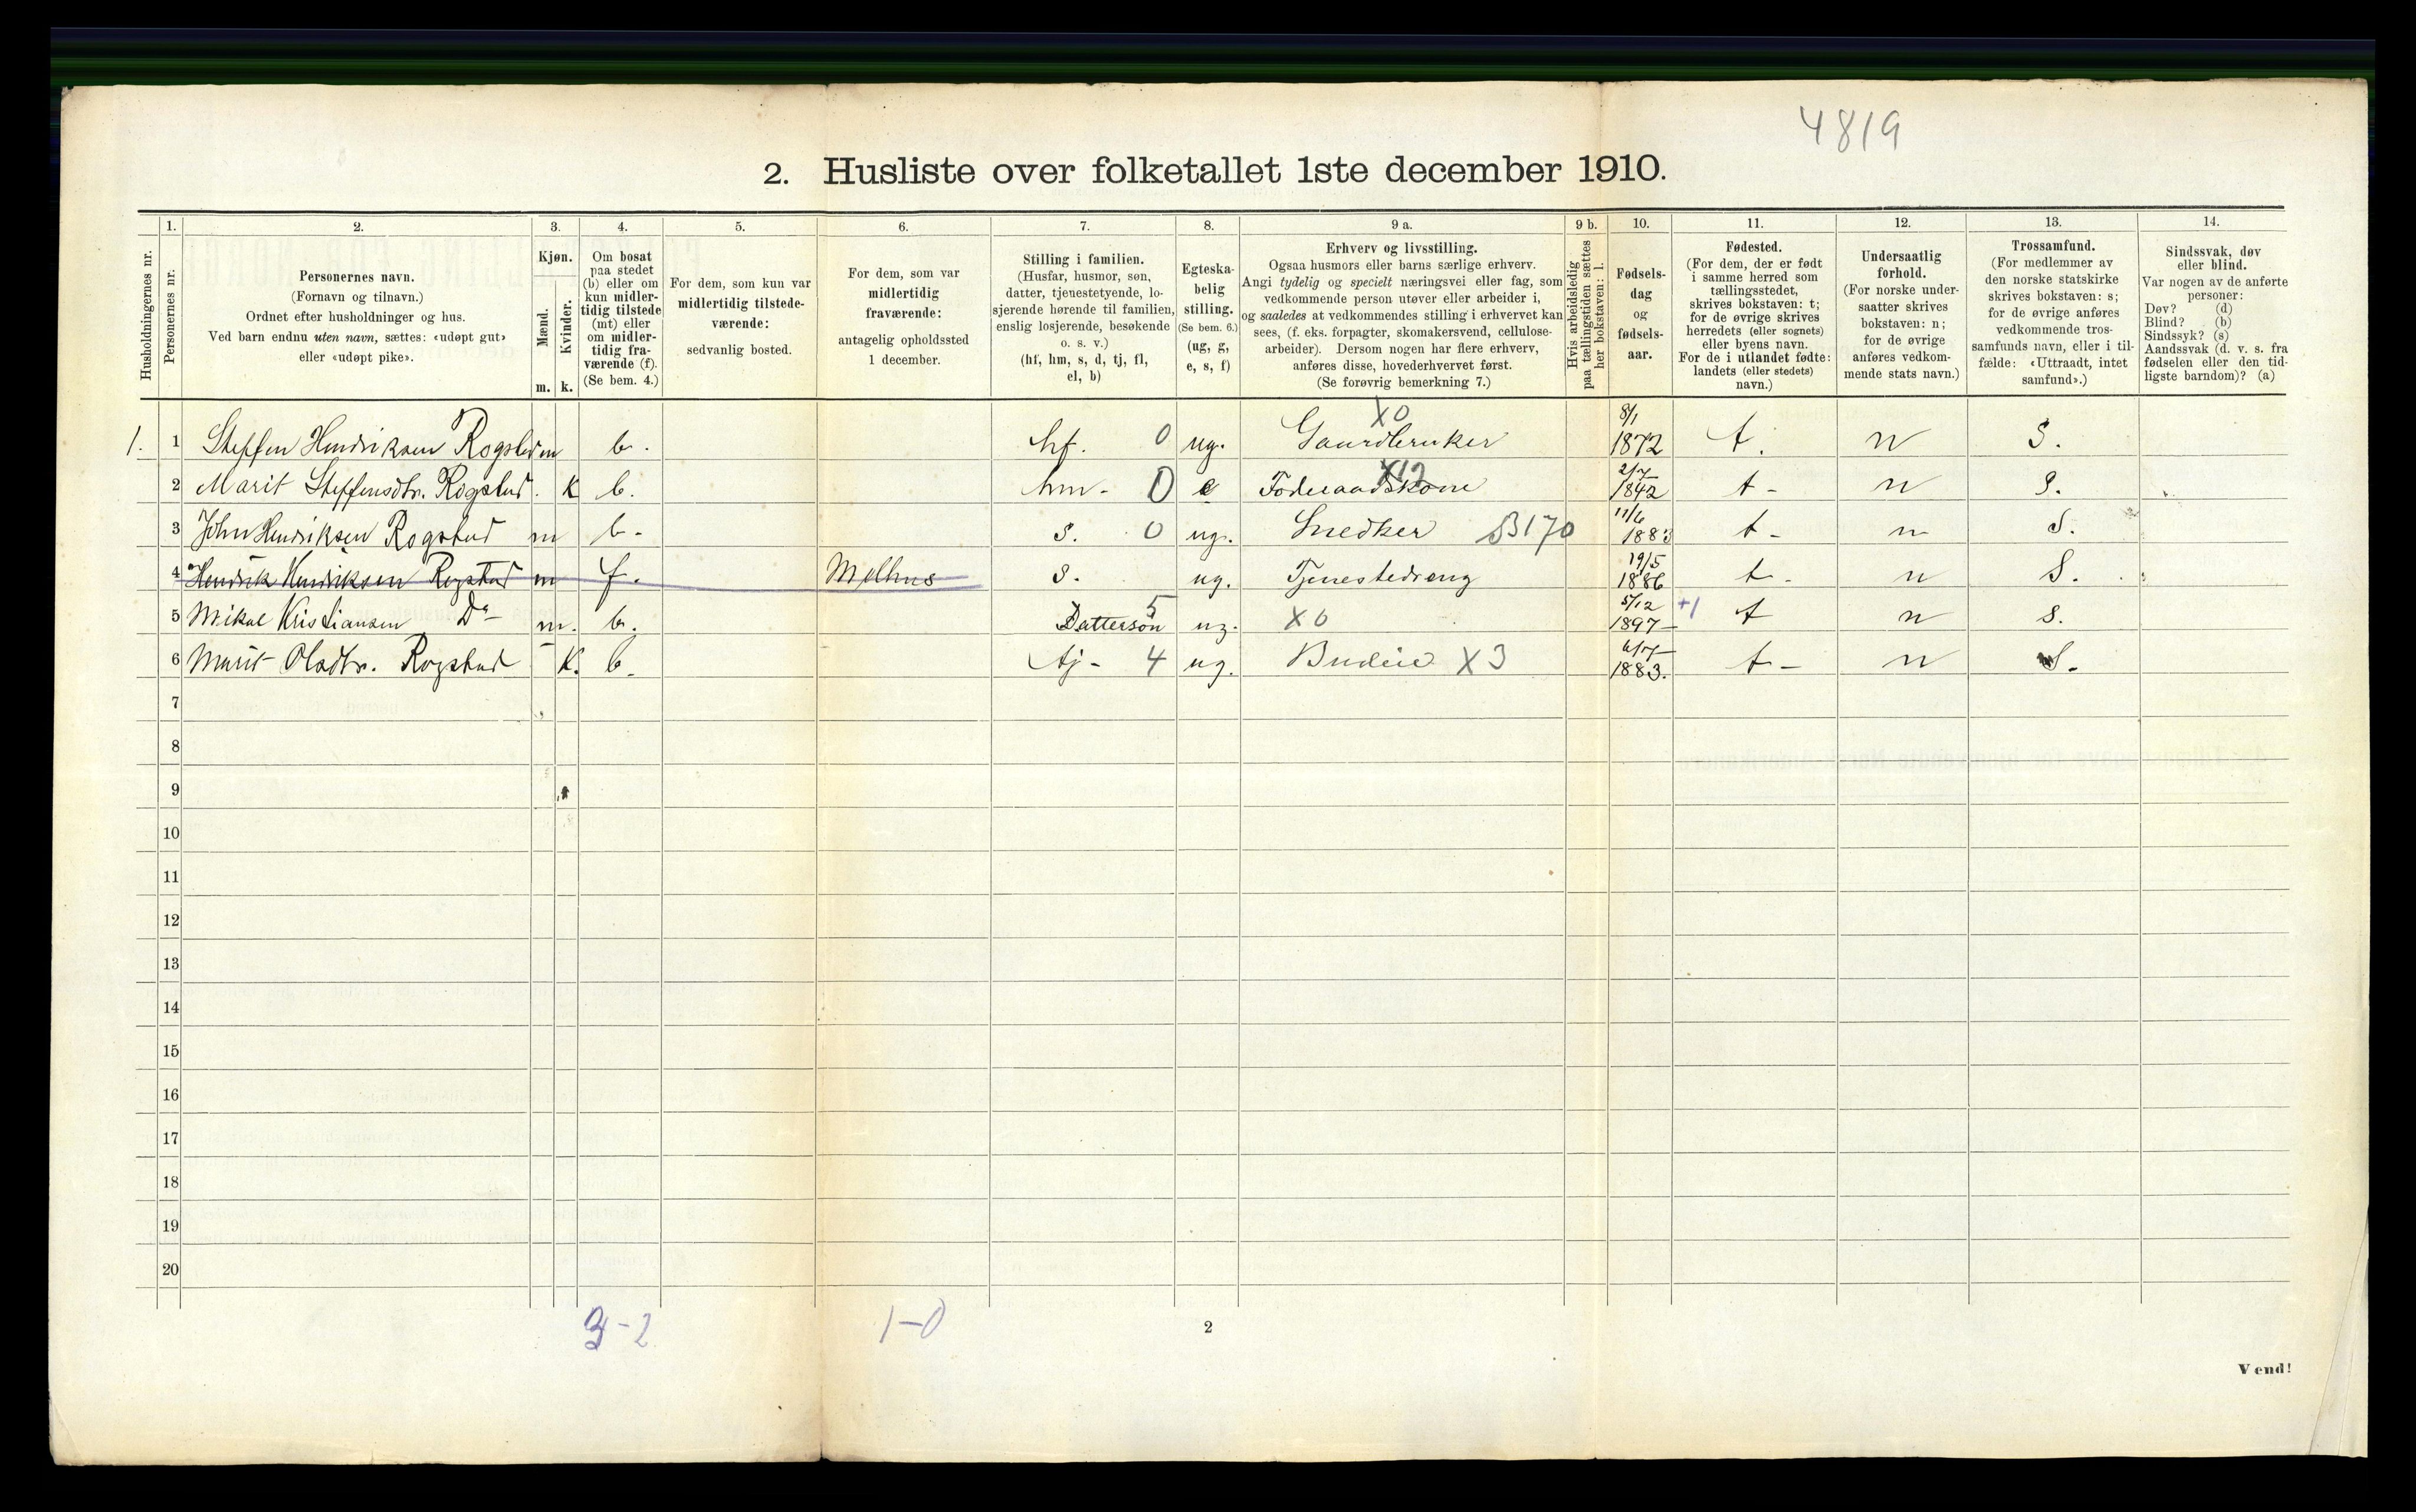 4819
2. Husliste over folketallet 1ste december 1910.
Husholdningernes nr.
1.
Personernes nr.
2.
Personernes navn.
(Fornavn og tilnavn.)
Ordnet efter husholdninger og hus.
Ved barn endnu uten navn, sættes: «udøpt gut»
eller «udøpt pike».
3.
Kjøn.
Mænd.
Kvinder.
m. k.
4.
Om bosat
paa stedet
(b) eller om
kun midler-
tidig tilstede
(mt) eller
om midler-
tidig fra-
værende (f).
(Se bem. 4.)
5.
For dem, som kun var
midlertidig tilstede-
værende:
sedvanlig bosted.
6.
For dem, som var
midlertidig
fraværende:
antagelig opholdssted
1 december.
7.
Stilling i familien.
(Husfar, husmor, søn,
datter, tjenestetyende, lo-
sjerende hørende til familien,
enslig losjerende, besøkende
o. s. v.)
(hf, hm, s, d, tj, fl,
el, b)
8.
Egteska-
belig
stilling.
(Se bem. 6.)
(ug, g,
e, s, f)
9 a.
Erhverv og livsstilling.
Ogsaa husmors eller barns særlige erhverv.
Angi tydelig og specielt næringsvei eller fag, som
vedkommende person utøver eller arbeider i,
og saaledes at vedkommendes stilling i erhvervet kan
sees, (f. eks. forpagter, skomakersvend, cellulose-
arbeider). Dersom nogen har flere erhverv,
anføres disse, hovederhvervet først.
(Se forøvrig bemerkning 7.)
9 b.
Hvis arbeidsledig
paa tællingstiden sættes
her bokstaven: l.
10.
Fødsels-
dag
og
fødsels-
aar.
11.
Fødested.
(For dem, der er født
i samme herred som
tællingsstedet,
skrives bokstaven: t;
for de øvrige skrives
herredets (eller sognets)
eller byens navn.
For de i utlandet fødte:
landets (eller stedets)
navn.)
12.
Undersaatlig
forhold.
(For norske under-
saatter skrives
bokstaven: n;
for de øvrige
anføres vedkom-
mende stats navn.)
13.
Trossamfund.
(For medlemmer av
den norske statskirke
skrives bokstaven: s;
for de øvrige anføres
vedkommende tros-
samfunds navn, eller i til-
fælde: «Uttraadt, intet
samfund».)
14.
Sindssvak, døv
eller blind.
Var nogen av de anførte
personer:
Døv? (d)
Blind? (b)
Sindssyk? (s)
Aandssvak (d. v. s. fra
fødselen eller den tid-
ligste barndom)? (a)
1. 1 Steffen Hendriksen Rogstad m b. hf. 0 ug. Gaardbruker X0 8/1 1872 t. n S.
2 Marit Steffensdtr. Rogstad. K b. hm- 0 e Foderaadskone X12 2/7 1842 t- n S.
3 John Hendriksen Rogstad m b- s. 0 ug. Snedker B170 11/6 1883 t- n S.
4 Hendrik Hendriksen Rogstad m f. Melhus s. ug. Tjenestedreng 19/5 1886 t- n S.
5 Mikal Kristiansen Do m. b. Datterson 5 ug. X0 5/12 1897 +1 t n S.
6 Marit Olsdtr. Rogstad K. b. tj- 4 ug. Budeie X3 6/7 1883. t- n S.
7
8
9
10
11
12
13
14
15
16
17
18
19
20
3-2 1-0
2
Vend!